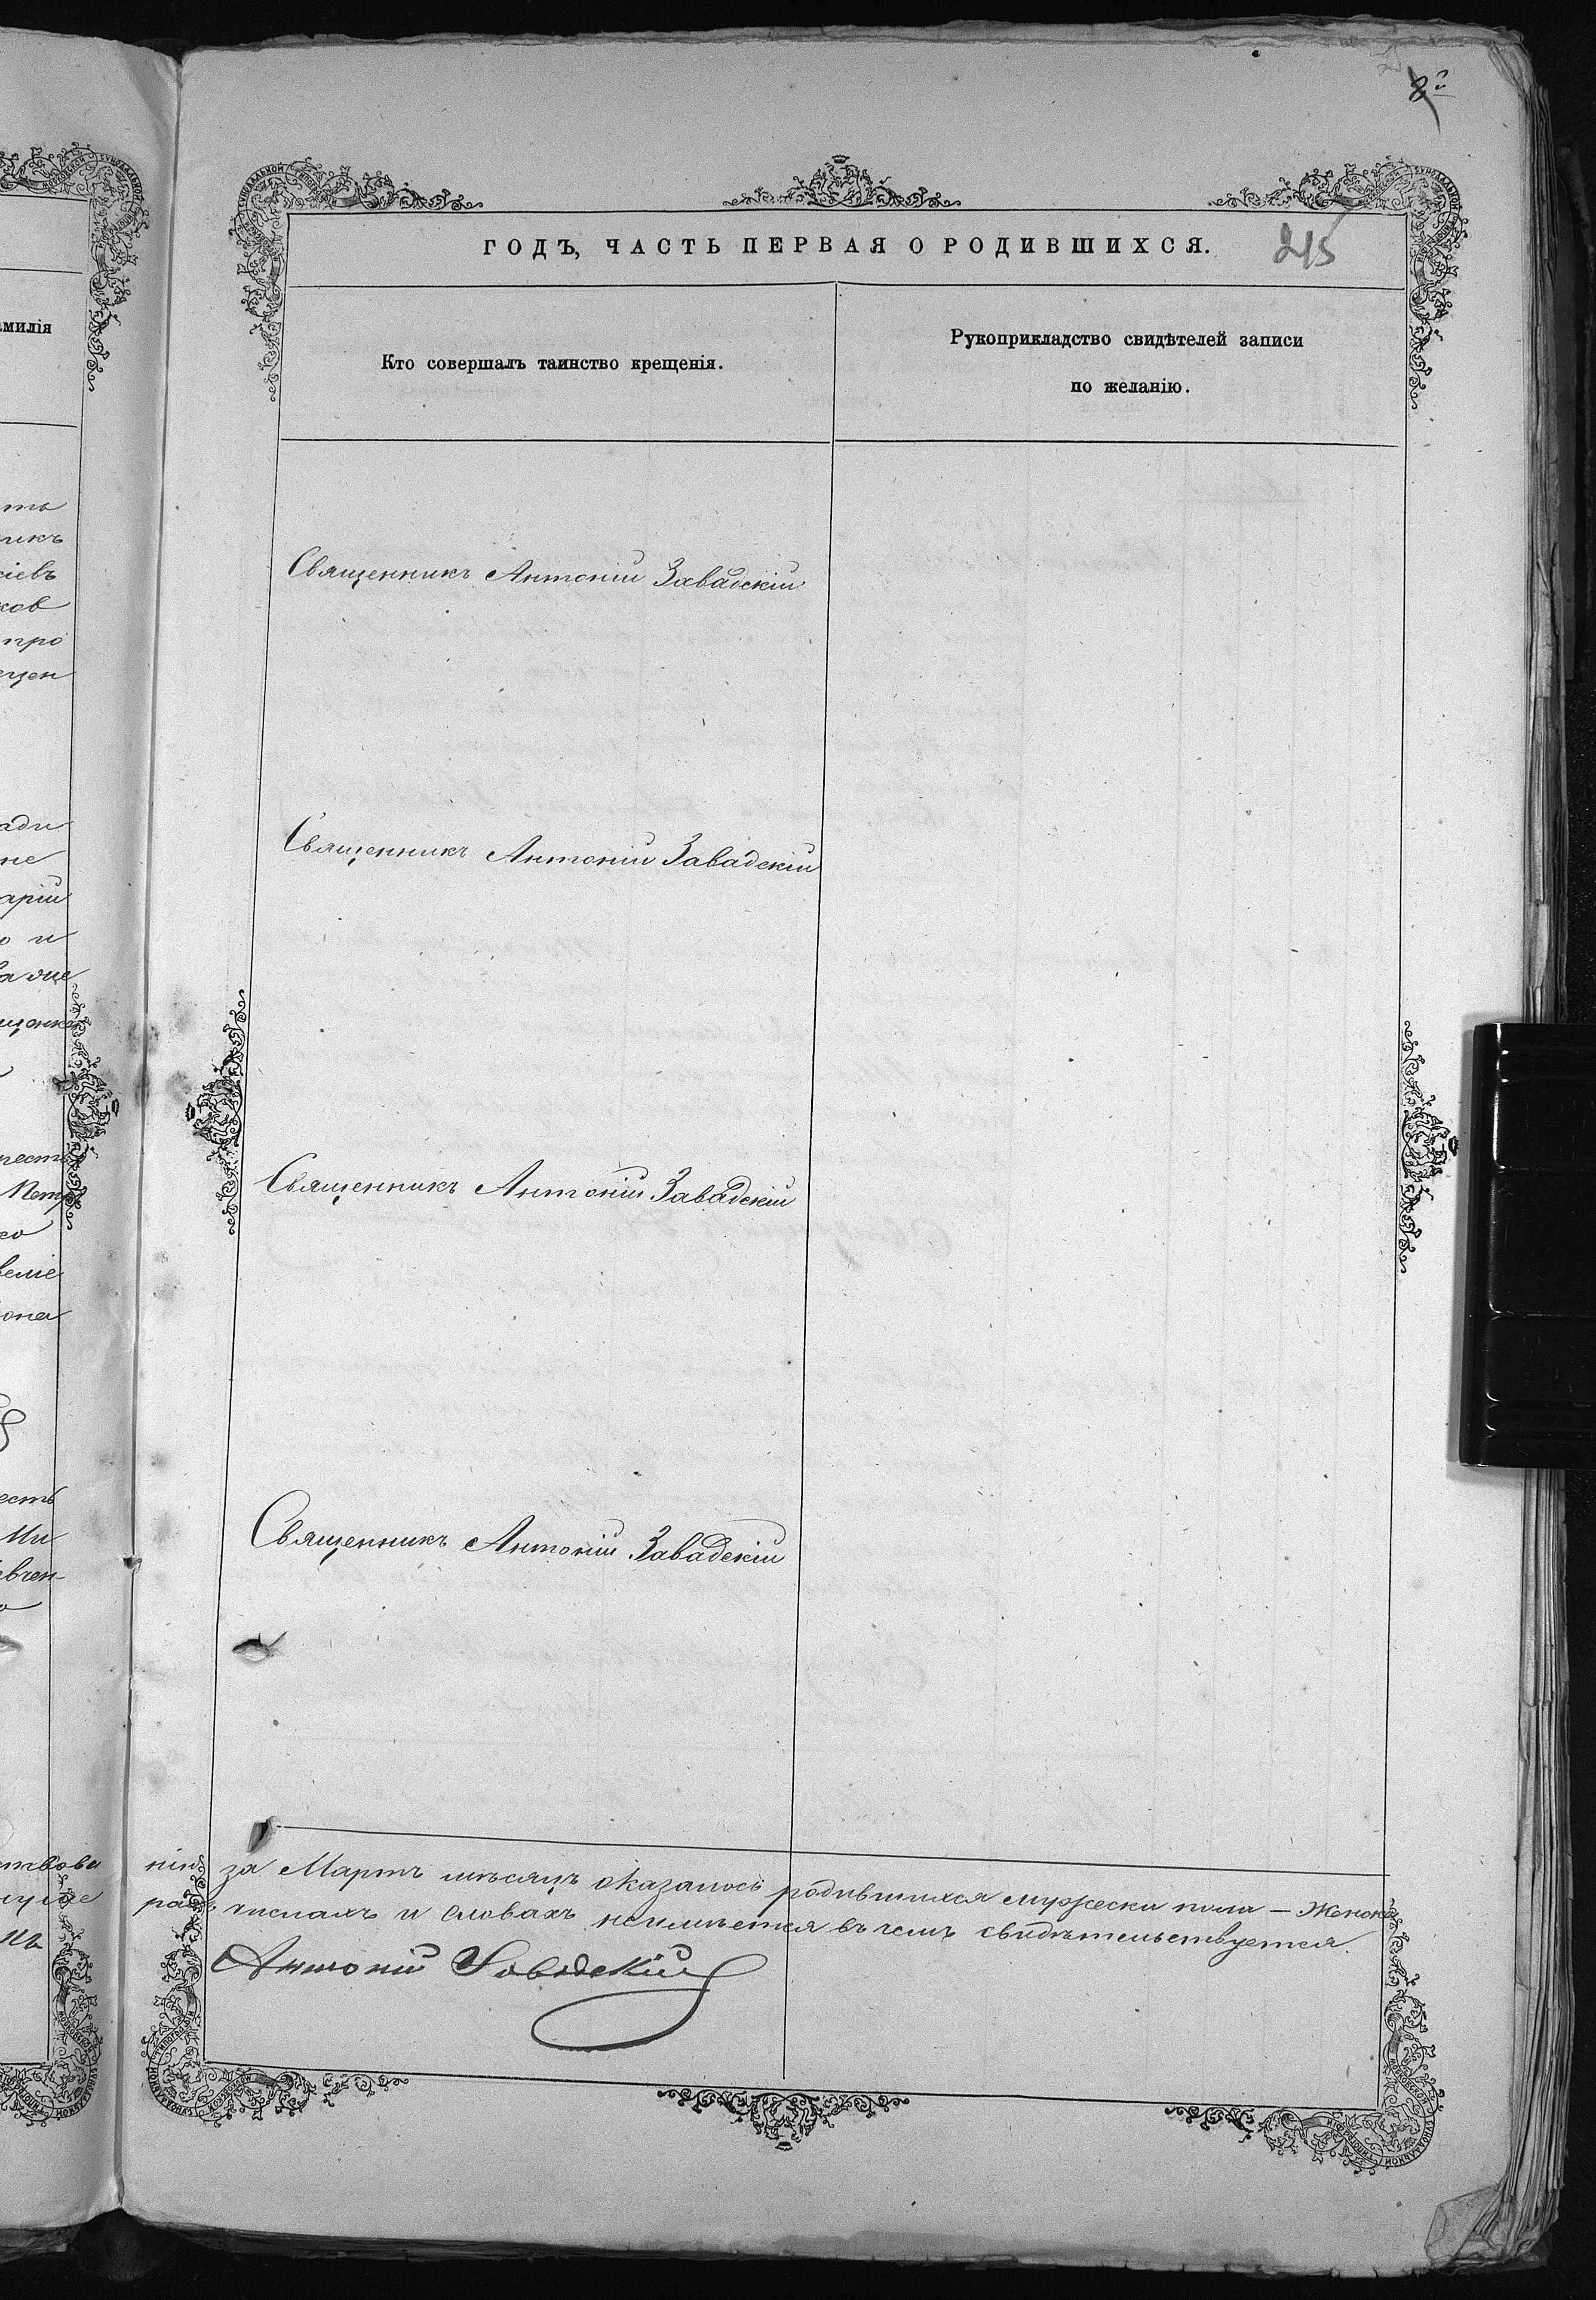 8й
ГОДЪ, ЧАСТЬ ПЕРВАЯ О РОДИВШИХСЯ.
215
Кто совершалъ таинство крещенія.
Рукоприкладство свидѣтелей записи
по желанію.
Священникъ Антоній Завадскій
Священникъ Антоній Завадскій
Священникъ Антоній Завадскій
Священникъ Антоній Завадскій
за Мартъ мѣсяцъ оказалось родившихся мужеска пола — Женска
числахъ и словахъ неимѣется въ чемъ свидѣтельствуется.
Антоній Завадскій
милія
икъ
ков
про
цен
ади
не
арій
о и
Петр
она
есть
Ми